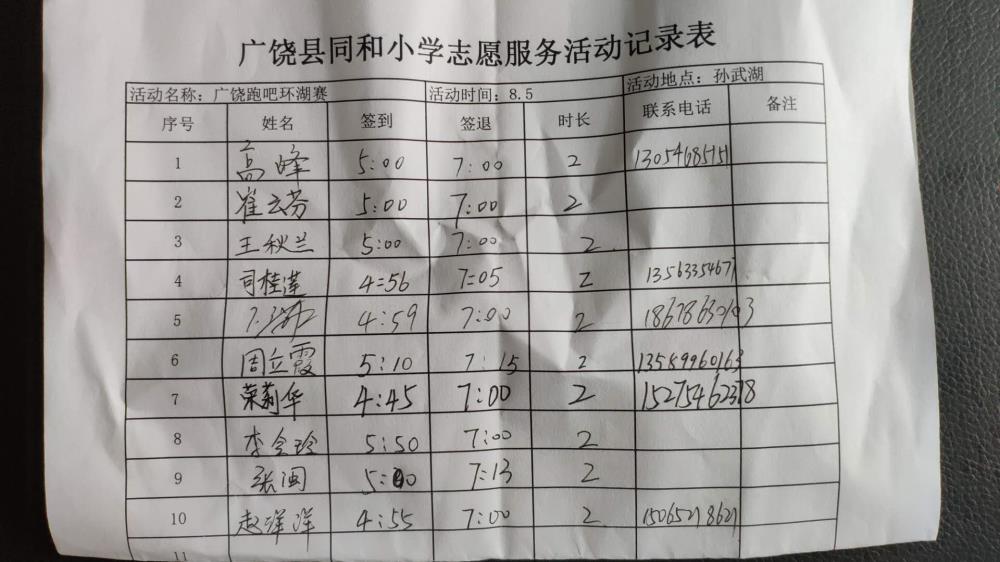 广饶县同和小学志愿服务活动记录表
活动名称：广饶跑吧环湖赛 活动时间：8.5 活动地点：孙武湖
序号 姓名 签到 签退 时长 联系电话 备注
1 高峰 5:00 7:00 2 13054685151
2 崔云芬 5:00 7:00 2
3 王秋兰 5:00 7:00 2
4 司桂莲 4:56 7:05 2 1356335467
5 4:59 7:00 2
6 周立霞 5:10 7:15 2 13589960163
7 荣莉华 4:45 7:00 2 15275462378
8 李会玲 5:50 7:00 2
9 张闽 5:00 7:13 2
10 赵洋洋 4:55 7:00 2 15065218621
11